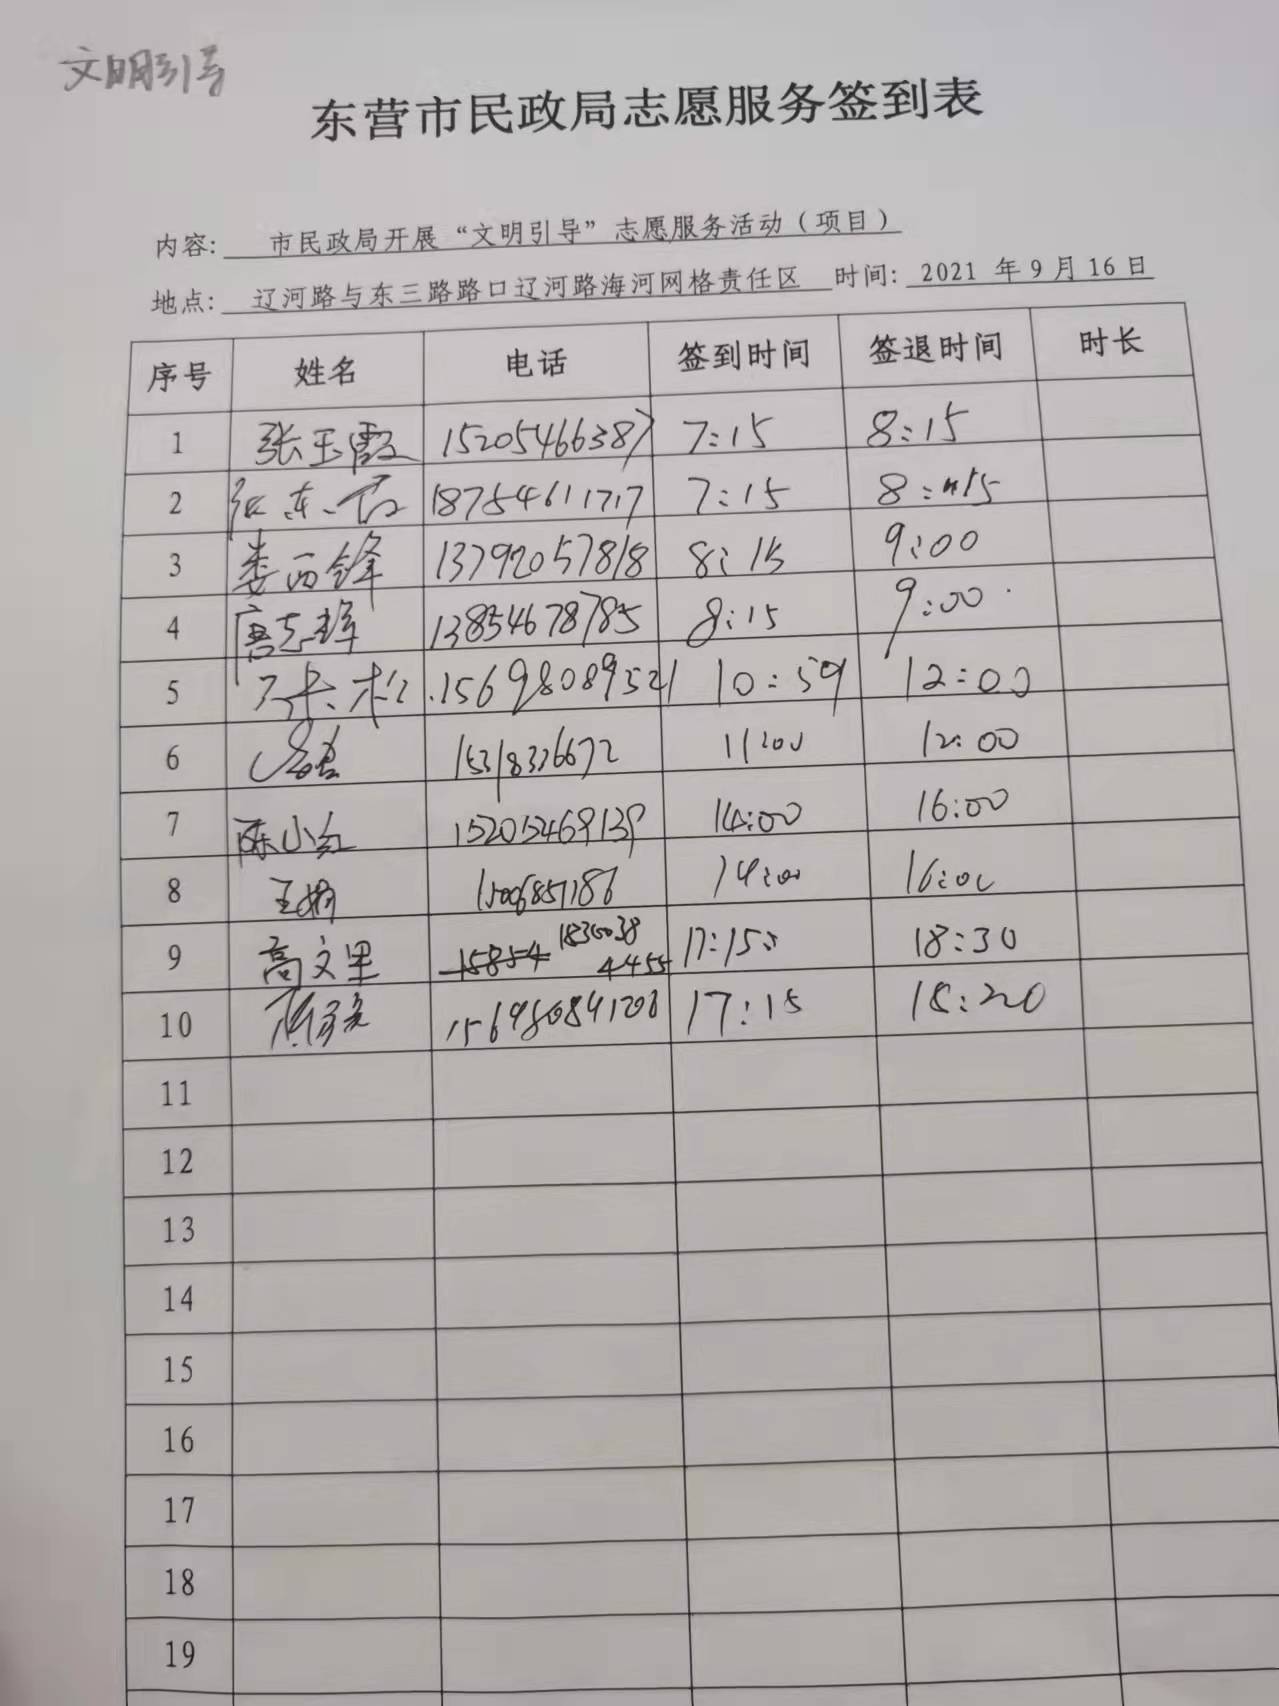 文明引导
东营市民政局志愿服务签到表
内容: 市民政局开展“文明引导”志愿服务活动(项目)
地点: 辽河路与东三路路口辽河路海河网格责任区 时间: 2021 年9月16日
序号 姓名 电话 签到时间 签退时间 时长
1 张玉霞 15205466387 7:15 8:15
2 18754611717 7:15 8:15
3 娄西锋 13792057818 8:15 9:00
4 唐志锋 13854678785 8:15 9:00
5 15698089521 10:59 12:00
6 15318336672 11:00 12:00
7 陈小红 15205469139 14:00 16:00
8 王娟 15006857186 14:00 16:00
9 高文里 15854 18300384455 17:15 18:30
10 17:15 18:20
11
12
13
14
15
16
17
18
19